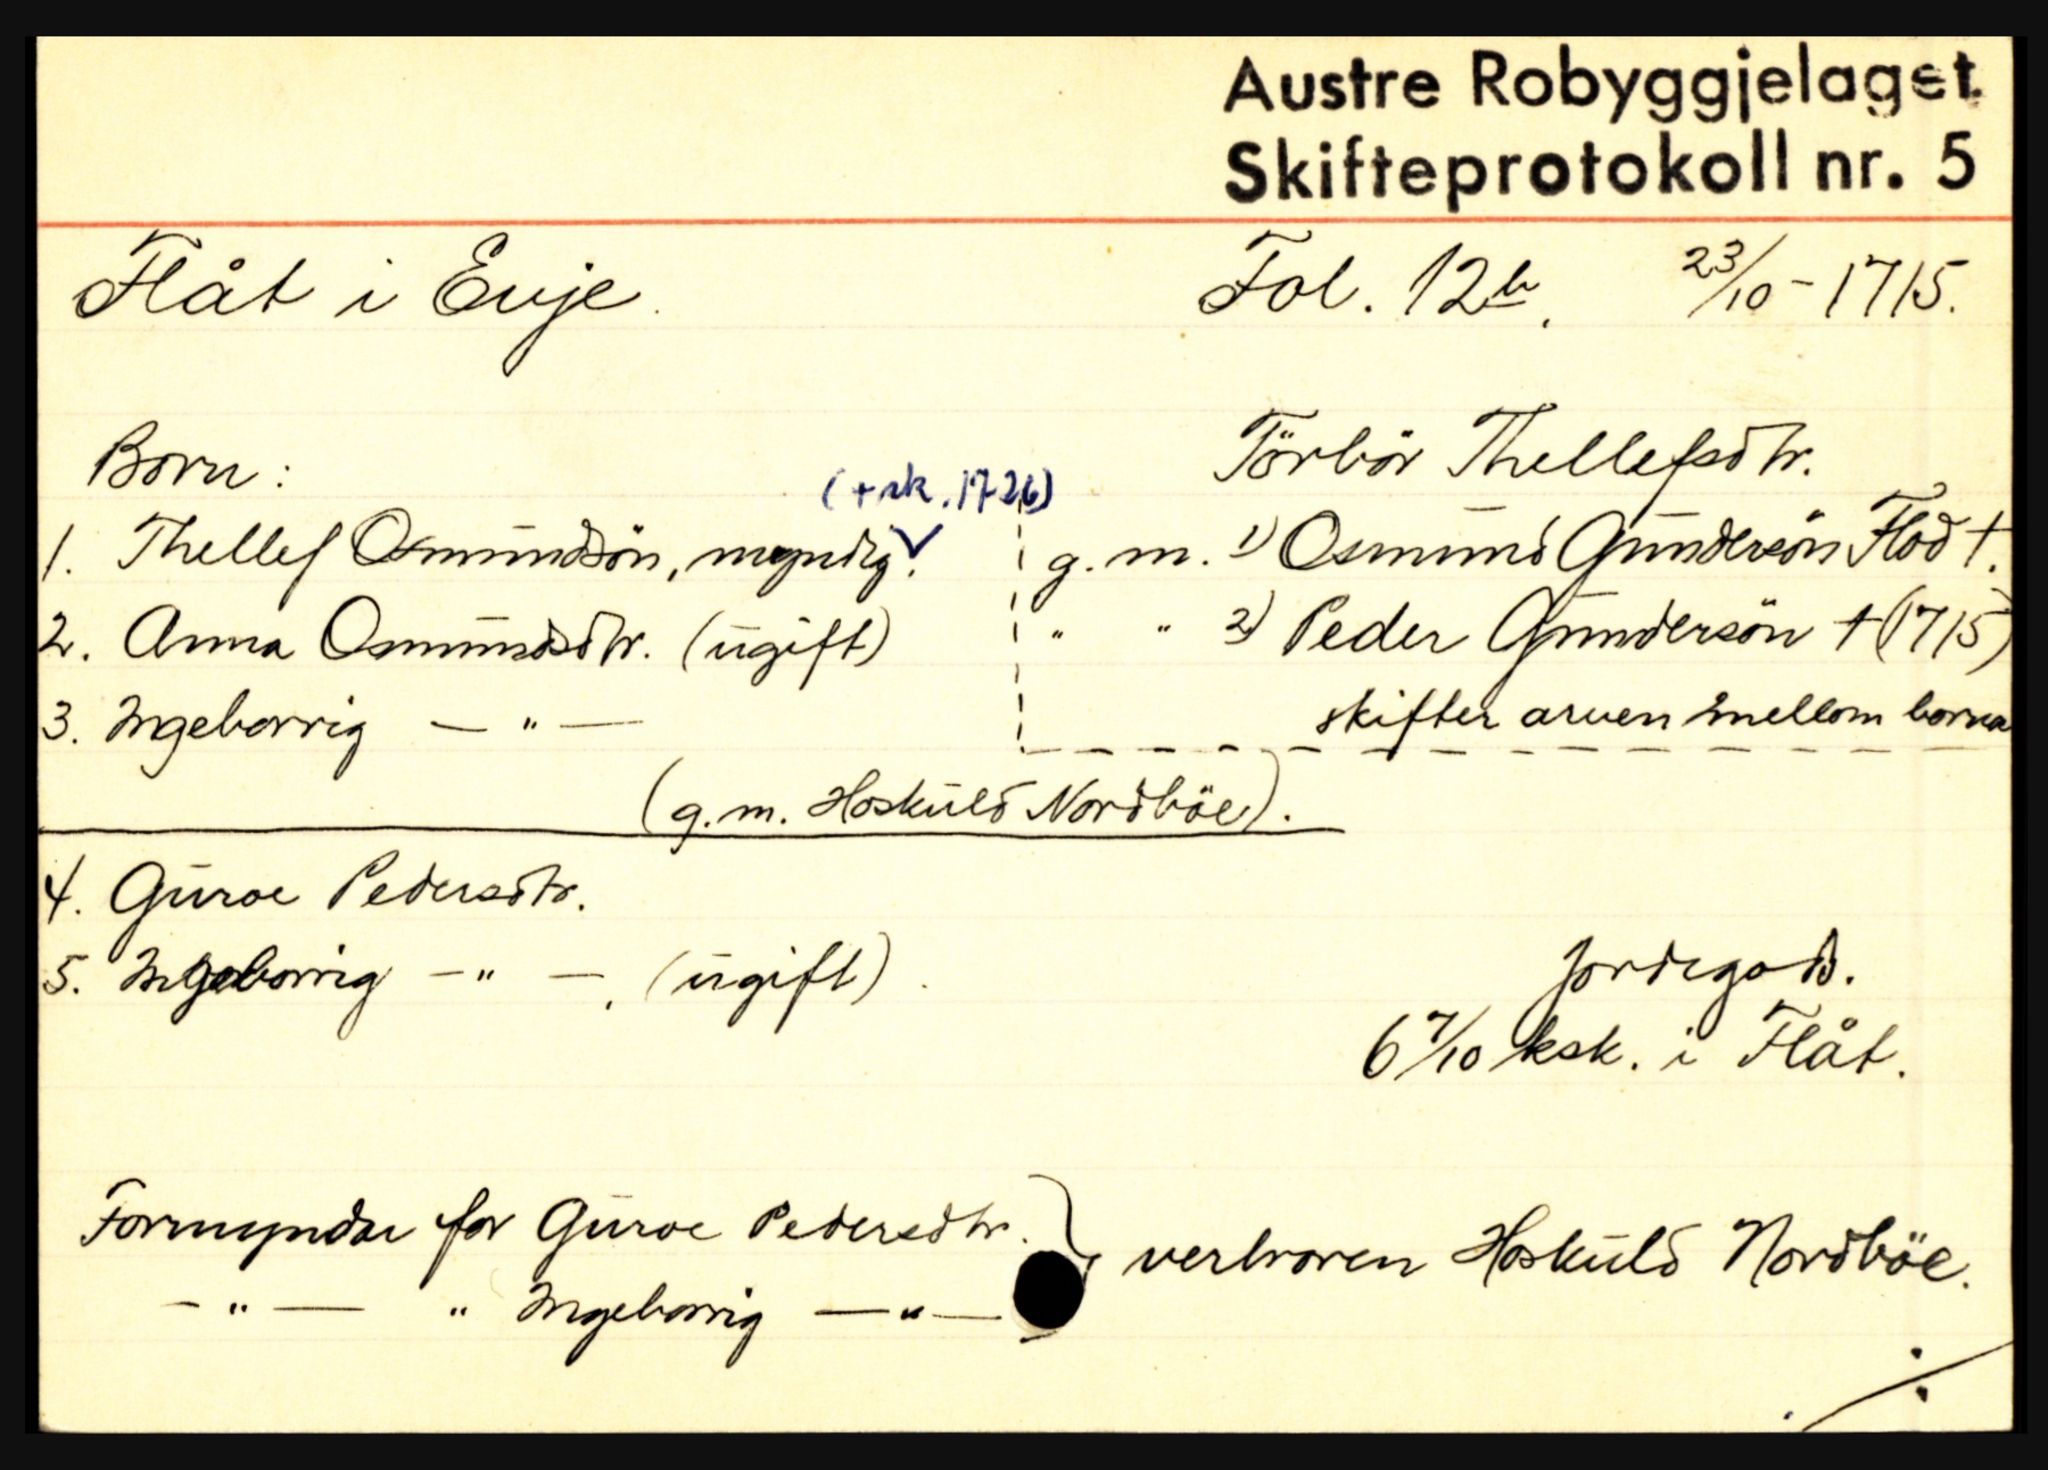 Austre Robyggjelaget.
Skifteprotokoll nr. 5
Flåt i Evje. Fol. 12b. 23/10 - 1715.
Born: Törbör Thellefsdtr.
(+ sk. 1726)
1. Thellef Osmūndsön, myndig. g. m. 1) Osmūnd Gūndersön Flod †.
2. Anna Osmūndsdtr. (ūgift) " " 2) Peder Gūndersön † (1715)
3. Ingeborrig — " — skifter arven mellom borna
(g. m. Hoskūld Nordböe).
4. Gūroe Pedersdtr.
5. Ingeborrig — " —. (ūgift). Jordegods.
6 7/10 ksk. i Flåt.
Formyndar for Gūroe Pedersdtr. } verbroren Hoskūld Nordböe.
— " — " Ingeborrig — " —
./.